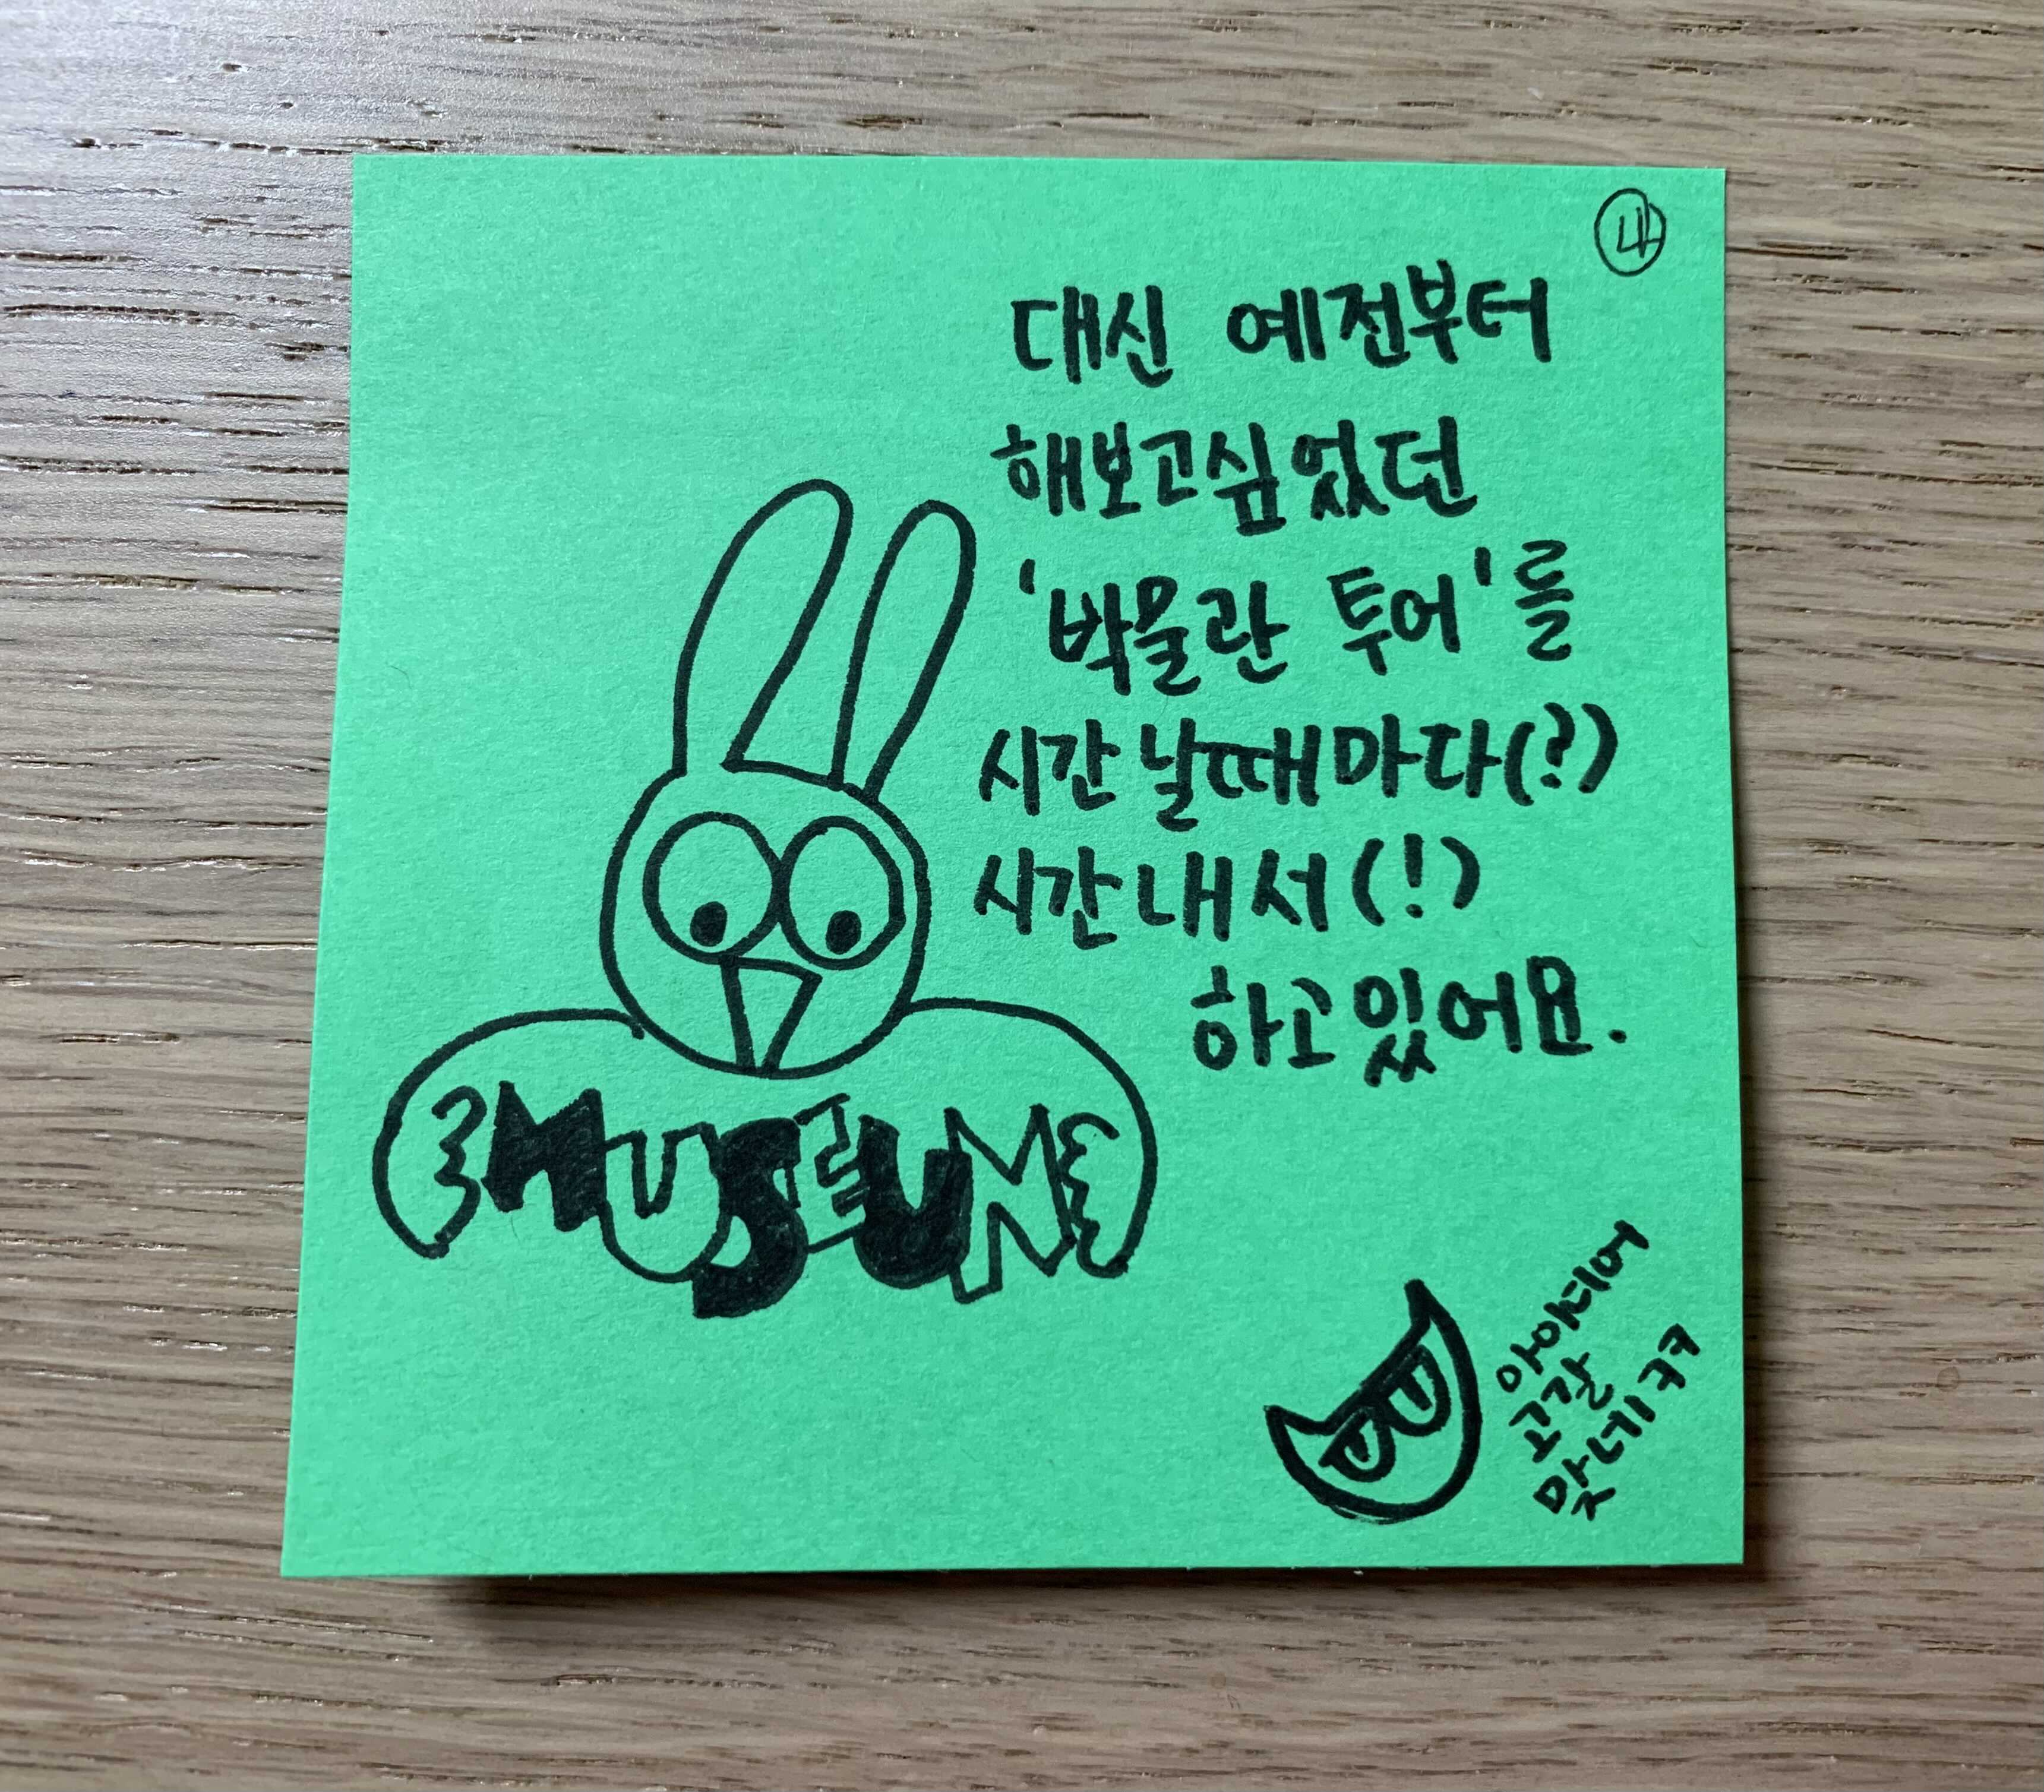 4
대신 예전부터
해보고싶었던
'박물관 투어'를
시간날때마다(?)
시간내서(!)
하고있어요.
MUSEUM
아이디어
고갈
맞네ㅋㅋ